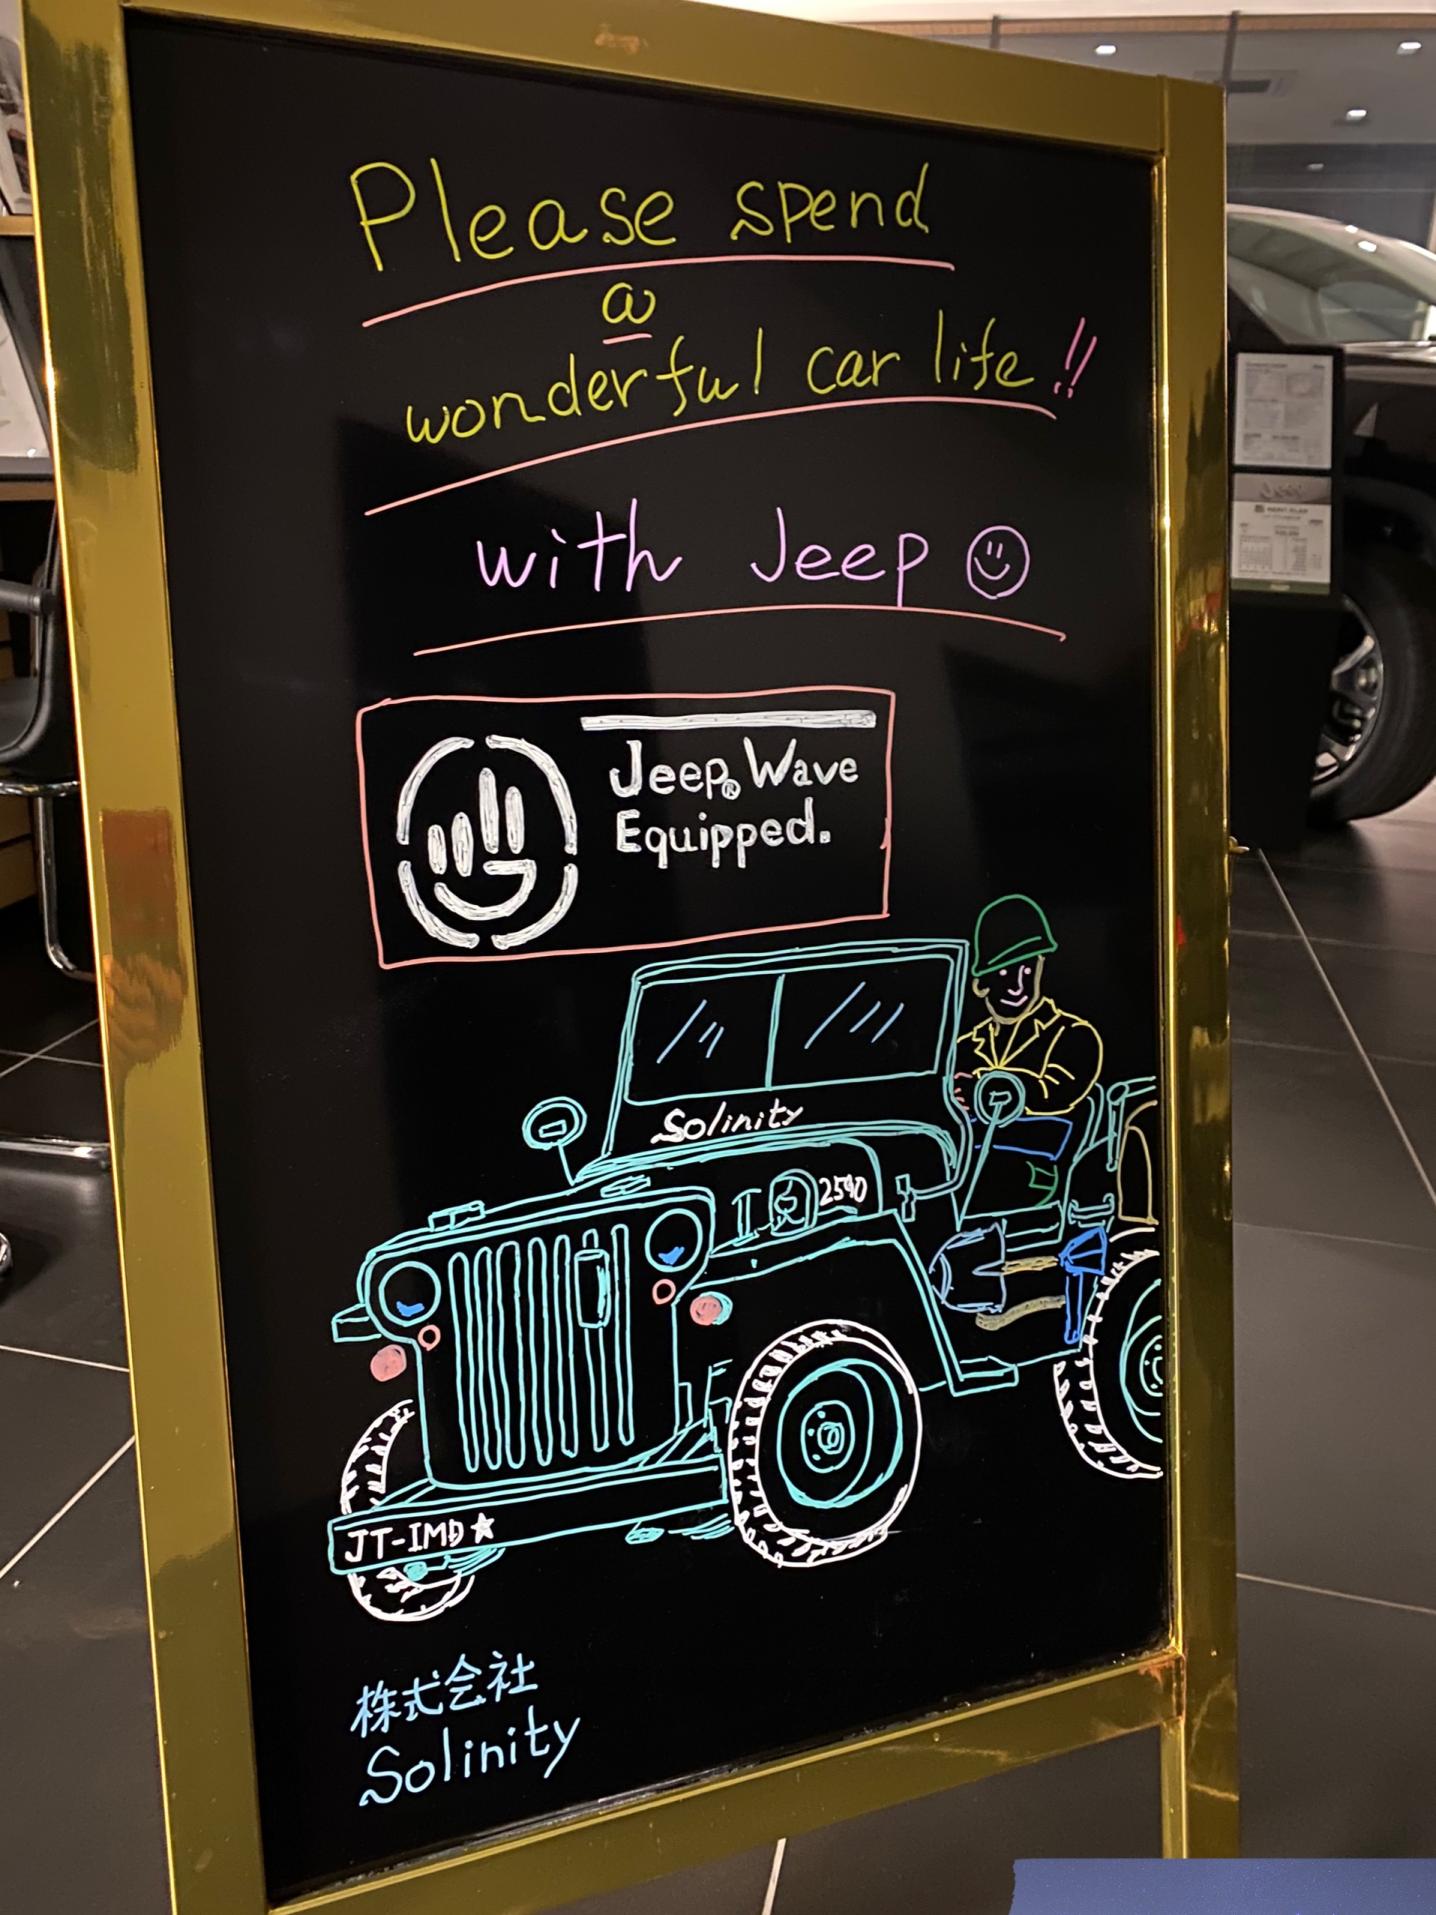 Please spend
a
wonderful car life!!
with Jeep
Jeep® Wave
Equipped.
Solinity
2590
JT-IMD★
株式会社
Solinity
Jeep